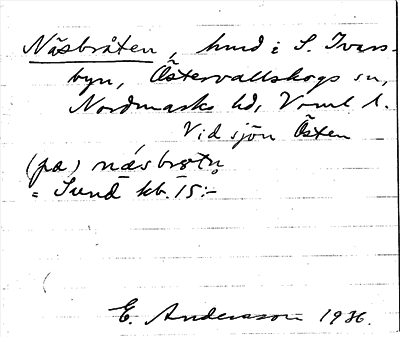 Näsbråten, hmd i S. Ivars-
byn, Östervallskogs sn,
Nordmarks hd, Vrml l.
Vid sjön Östen
(pa) näsbrotn̥
= Sund kb. 15:-
E. Andersson 1936.